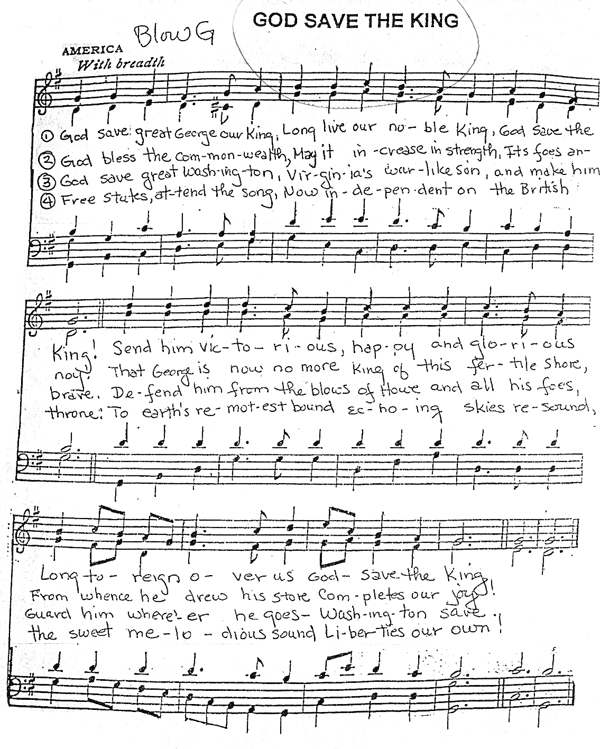 GOD SAVE THE KING
Blow G
AMERICA
With breadth
① God save great George our King, Long live our no-ble King, God save the
② God bless the Com-mon-wealth, May it in-crease in strength, Its foes an-
③ God save great Wash-ing-ton, Vir-gin-ia's war-like son, and make him
④ Free States, at-tend the song, Now in-de-pen-dent on the British
King! Send him vic-to-ri-ous, hap-py and glo-ri-ous
noy. That George is now no more King of this fer-tile shore,
brave. De-fend him from the blows of Howe and all his foes,
throne: To earth's re-mot-est bound ec-ho-ing skies re-sound,
Long-to-reign o-ver us God-save the King!
From whence he drew his store Com-pletes our joy!
Guard him where'er he goes-Wash-ing-ton save!
the sweet me-lo-dious sound Li-ber-ties our own!